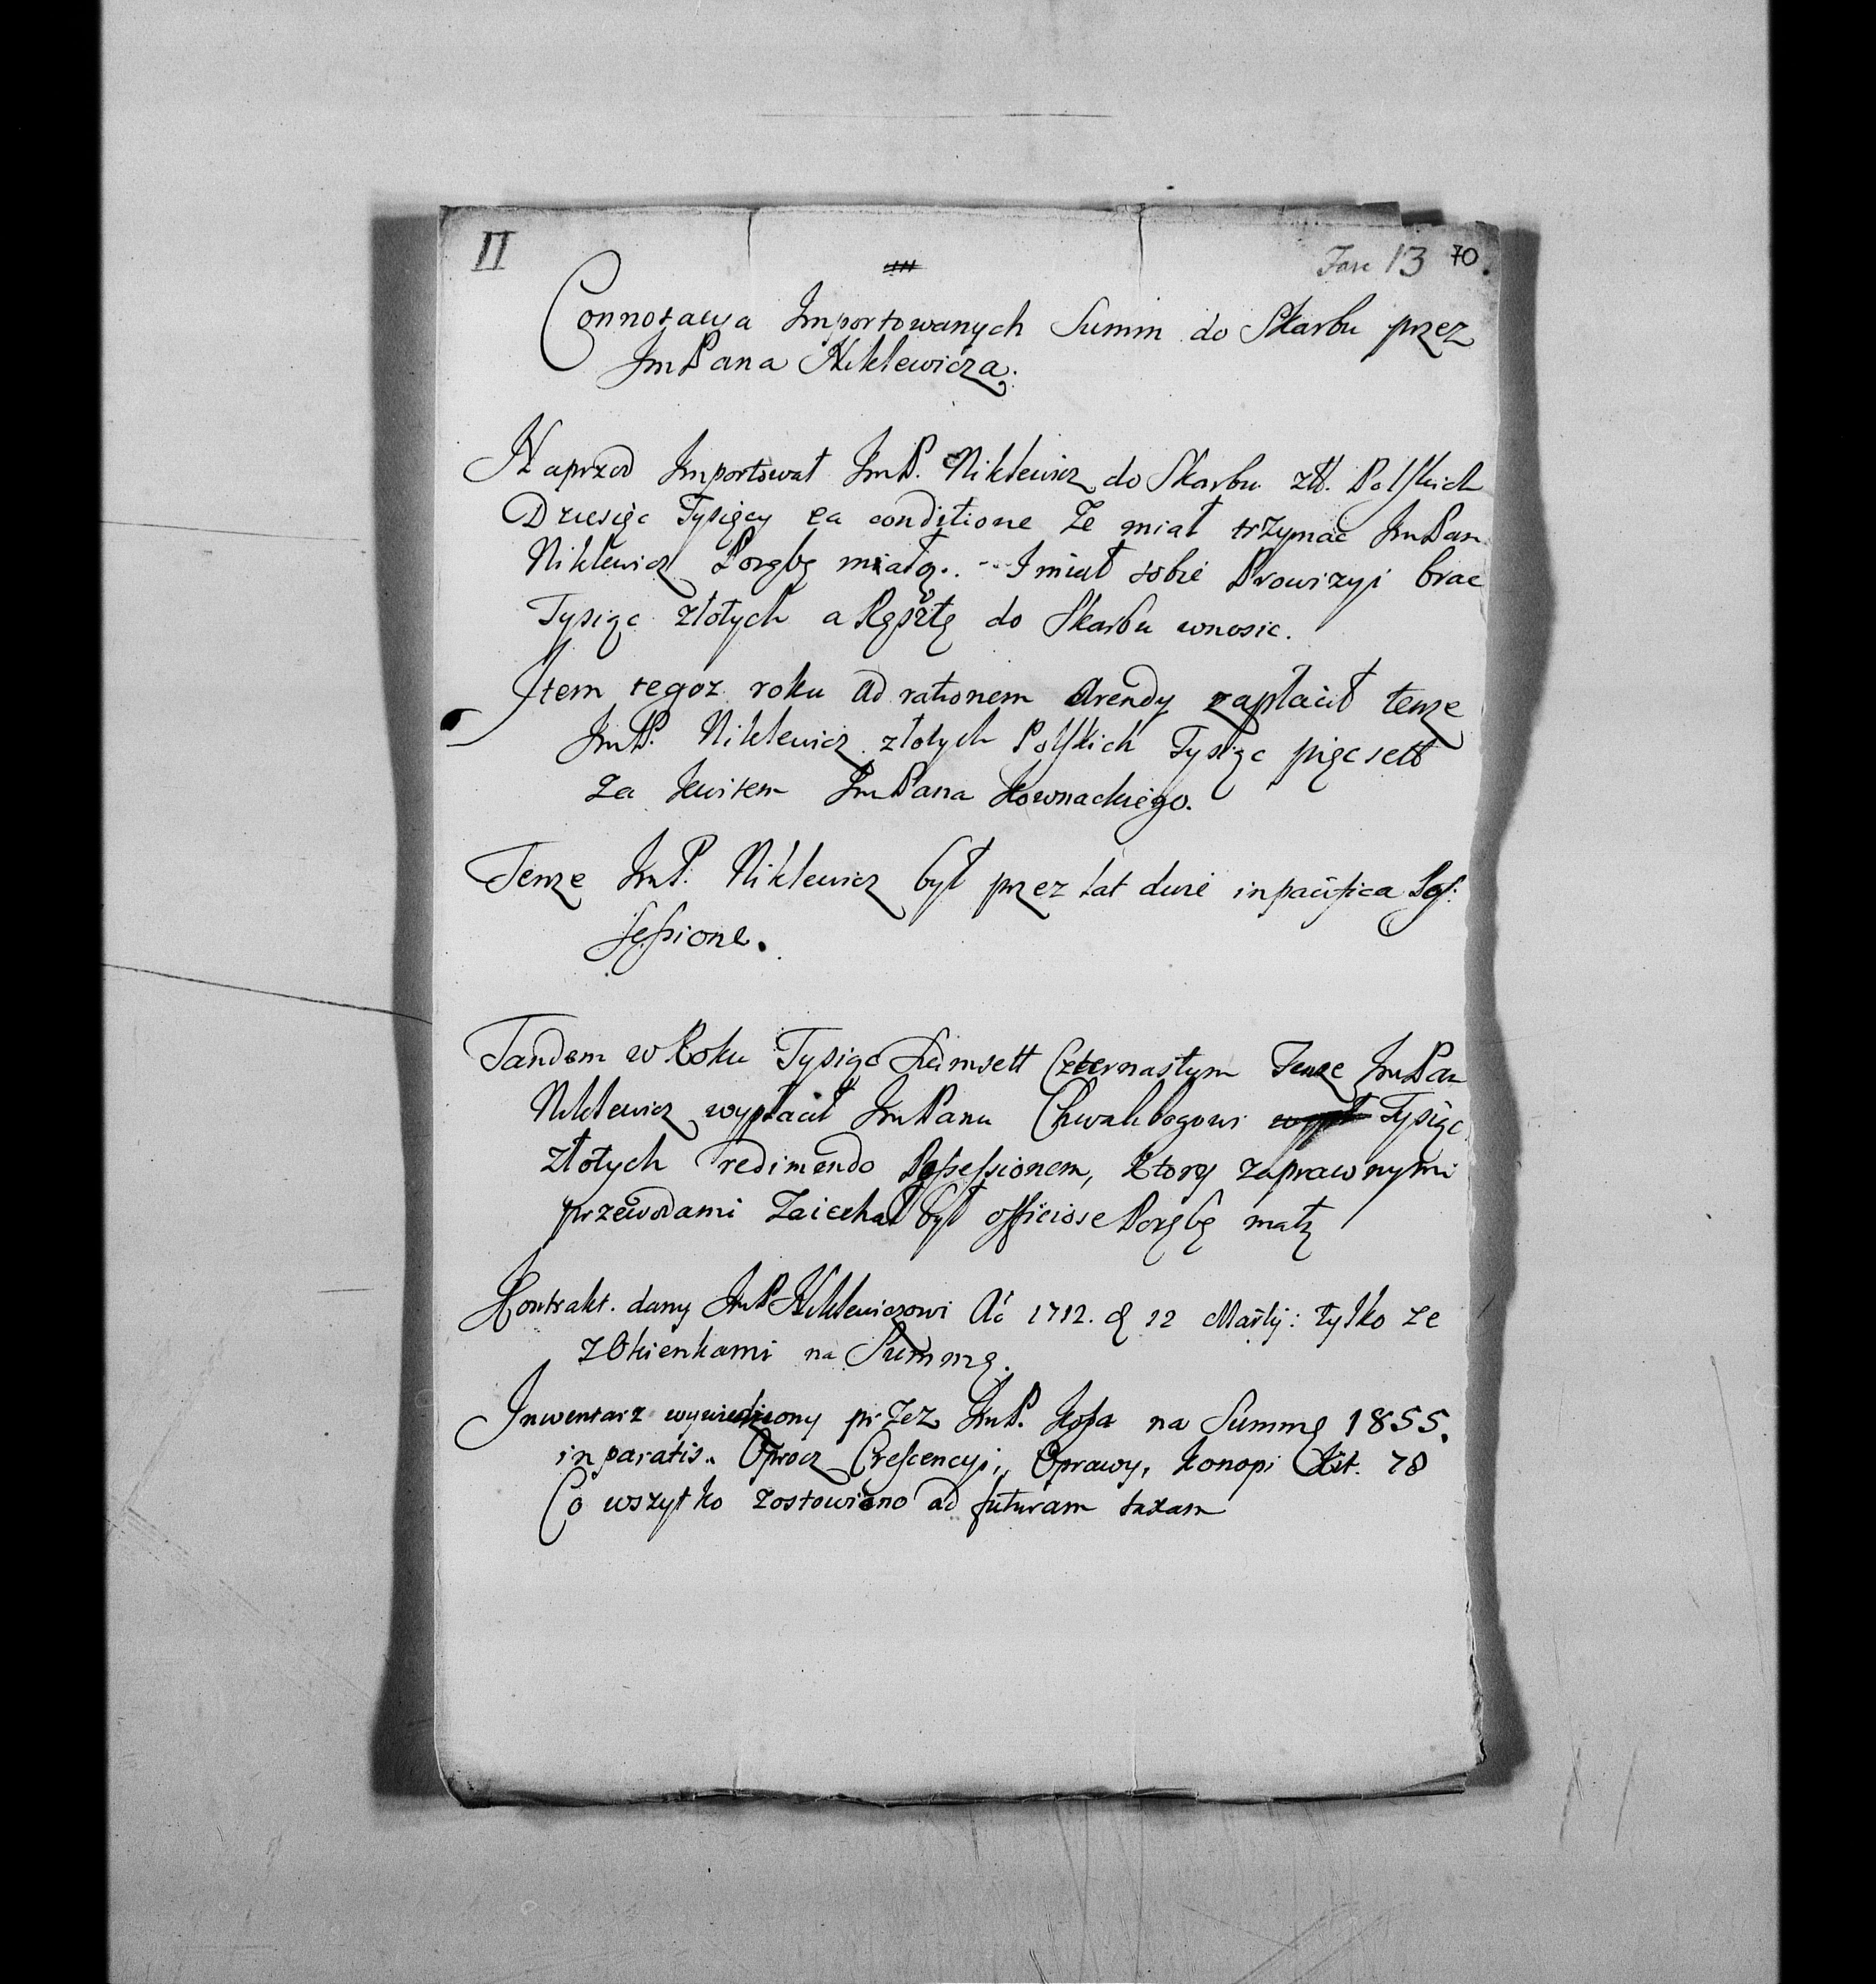 II
Fasc 13 70
Connotacya Importowanych Summ do Skarbu przez
JmPana Niklewicza.
Naprzod Importował JmP. Niklewicz do Skarbu złł. Polskich
Dziesięc Tysięcy ea conditione Ze miał trzymac JmPan
Niklewicz Porębę miałą. I miał sobie Prowizyi brac
Tysiąc złotych a Resztę do Skarbu wnosic.
Item tegoz roku ad rationem Arendy zapłacił tenze
JmP. Niklewicz złotych Polskich Tysiąc pięcsett
za kwitem JmPana Kownackiego.
Tenze JmP. Niklewicz był przez lat dwie in pacifica Pos:
sessione.
Tandem w Roku Tysiąc Siedmsett Czternastym Tenze JmPan
Niklewicz wypłacił JmPanu Chwalibogowi Tysiąc
złotych redimendo Possessionem, ktory zaprawnymi
przewodami Zaiechał był officiose Porębę małą
Kontrakt dany JmP Niklewiczowi Ao 1712. d 12 Martij: tylko ze
z Okienkami na Summę.
Inwentarz wywiedziony przez JmP. Kossa na Summę 1855.
in paratis. Oprocz Crescencyi, Oprawy, konopi Kit. 78
Co wszytko zostawiono ad futuram taxam